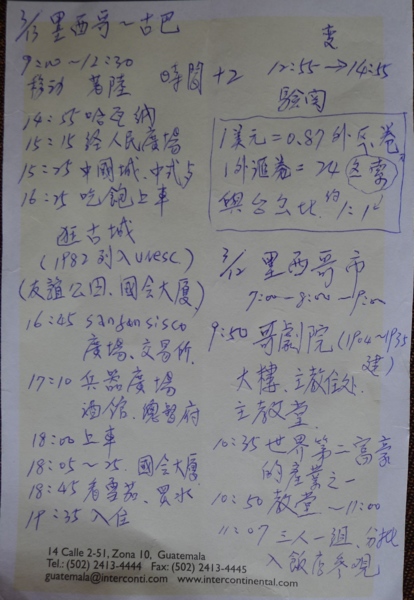 3/13 里西哥~古巴
9:00~12:30
移动 著陸 時間+2 変
12:55→14:55
驗関
14:55 哈瓦納
15:15 經人民廣場
15:25 中國城、中式
16:25 吃飽上車
逛古城
(1982列入Unesc)
(友誼公园、國会大廈)
16:45 Sanfansisco
廣場、交易所
17:10 兵器廣場
酒館、總督府
18:00 上車
18:05~25. 國会大廈
18:45 看雪茄、
19:35 入住
1美元=0.87外汇卷
1外滙卷=24
與台幣比 約1:1
3/12 里西哥市
7:00-8:00-9:00
9:50 哥劇院(1904~1935建)
大樓、主教住处
主教堂
10:35 世界第二富豪
的產業之一
10:50 教堂~11:00
11:07 三人一組、分批
入飯店參观
14 Calle 2-51, Zona 10, Guatemala
Tel.: (502) 2413-4444 Fax: (502) 2413-4445
guatemala@interconti.com www.intercontinental.com